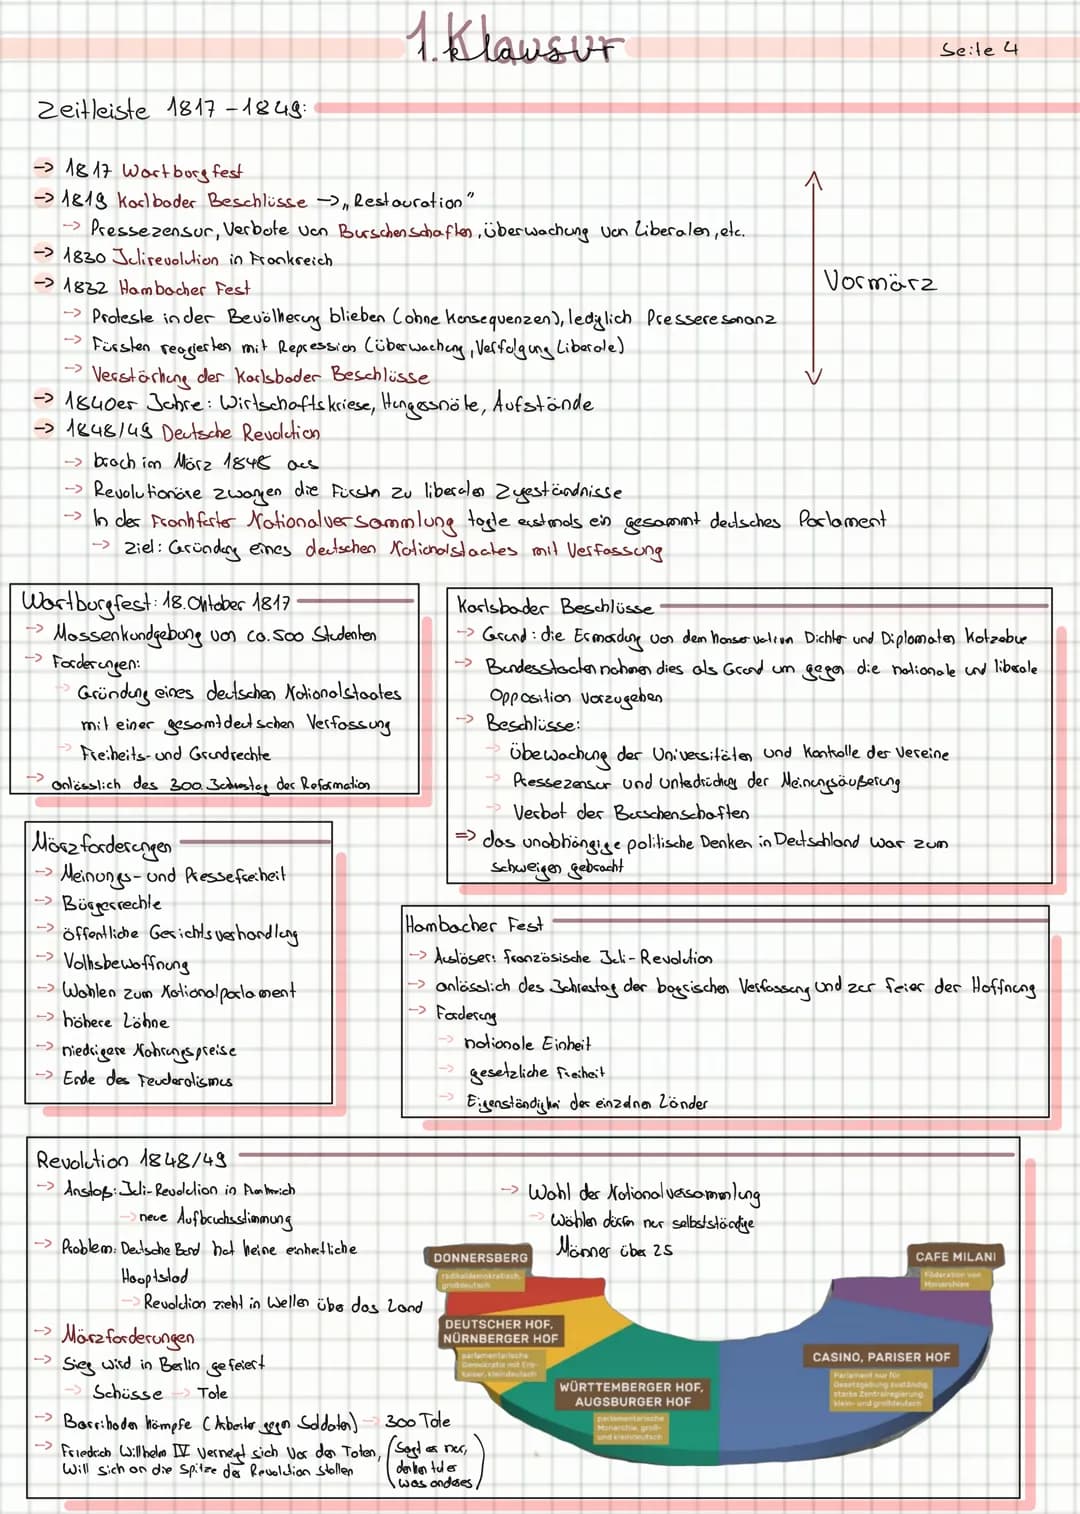 1. Klausur
1. Klausur
Seite 4
Zeitleiste 1817 - 1849:
-> 1817 Wartburgfest
-> 1819 Karlbader Beschlüsse -> „Restauration"
-> Pressezensur, Verbote von Burschenschaften, Überwachung von Liberalen, etc.
-> 1830 Julirevolution in Frankreich
-> 1832 Hambacher Fest
Vormärz
-> Proteste in der Bevölkerung blieben (ohne Konsequenzen), lediglich Presseresonanz
-> Fürsten reagierten mit Repression (Überwachung, Verfolgung Liberale)
-> Verstärkung der Karlsbader Beschlüsse
-> 1840er Jahre: Wirtschaftskriese, Hungersnöte, Aufstände
-> 1848/49 Deutsche Revolution
-> brach im März 1848 aus
-> Revolutionäre zwangen die Fürsten zu liberalen Zugeständnisse
-> In der Frankfurter Nationalversammlung tagte erstmals ein gesammt deutsches Parlament
-> Ziel: Gründung eines deutschen Nationalstaates mit Verfassung
Wartburgfest: 18. Oktober 1817
-> Massenkundgebung von ca. 500 Studenten
-> Forderungen:
-> Gründung eines deutschen Nationalstaates
mit einer gesamtdeutschen Verfassung
-> Freiheits- und Grundrechte
-> anlässlich des 300. Jahrestag der Reformation
Karlsbader Beschlüsse
-> Grund: die Ermordung von dem konservativen Dichter und Diplomaten Kotzebue
-> Bundesstaaten nahmen dies als Grund um gegen die nationale und liberale
Opposition vorzugehen
-> Beschlüsse:
-> Übewachung der Universitäten und Kontrolle der Vereine
-> Pressezensur und Unterdrückung der Meinungsäußerung
-> Verbot der Burschenschaften
=> das unabhängige politische Denken in Deutschland war zum
schweigen gebracht
Märzforderungen
-> Meinungs- und Pressefreiheit
-> Bürgerrechte
-> öffentliche Gerichtsverhandlung
-> Volksbewaffnung
-> Wahlen zum Nationalparlament
-> höhere Löhne
-> niedrigere Nahrungspreise
-> Ende des Feuderalismus
Hambacher Fest
-> Auslöser: französische Juli-Revolution
-> anlässlich des Jahrestag der bayrischen Verfassung und zur feier der Hoffnung
-> Forderung
-> nationale Einheit
-> gesetzliche Freiheit
-> Eigenständigkeit der einzelnen Länder
Revolution 1848/49
-> Anstoß: Juli-Revolution in Frankreich
-> neue Aufbruchsstimmung
-> Problem: Deutsche Bund hat keine einheitliche
Hauptstad
-> Revolution zieht in Wellen über das Land
-> Märzforderungen
-> Sieg wird in Berlin gefeiert
-> Schüsse -> Tote
-> Barrikaden kämpfe (Arbeiter gegen Soldaten) -> 300 Tote
-> Friedrich Willhelm IV verneigt sich vor den Toten,
Will sich an die Spitze der Revolution stellen
(Sagt es nur,
denken tut er
was anderes)
-> Wahl der Nationalversammlung
-> Wählen dürfen nur selbstständige
Männer über 25
DONNERSBERG
radikaldemokratisch,
großdeutsch
DEUTSCHER HOF,
NÜRNBERGER HOF
parlamentarische
Demokratie mit Erb-
kaiser, kleindeutsch
WÜRTTEMBERGER HOF,
AUGSBURGER HOF
parlamentarische
Monarchie, groß-
und kleindeutsch
CASINO, PARISER HOF
Parlament nur für
Gesetzgebung zuständig,
starke Zentralregierung,
klein- und großdeutsch
CAFE MILANI
Föderation von
Monarchien